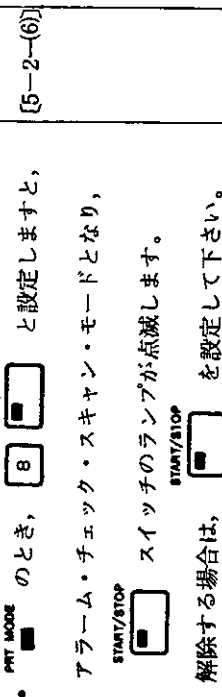 • PRT MODE のとき, 8 と設定しますと,
アラーム・チェック・スキャン・モードとなり,
START/STOP スイッチのランプが点滅します。
解除する場合は, START/STOP を設定して下さい。
[5-2-(6)]